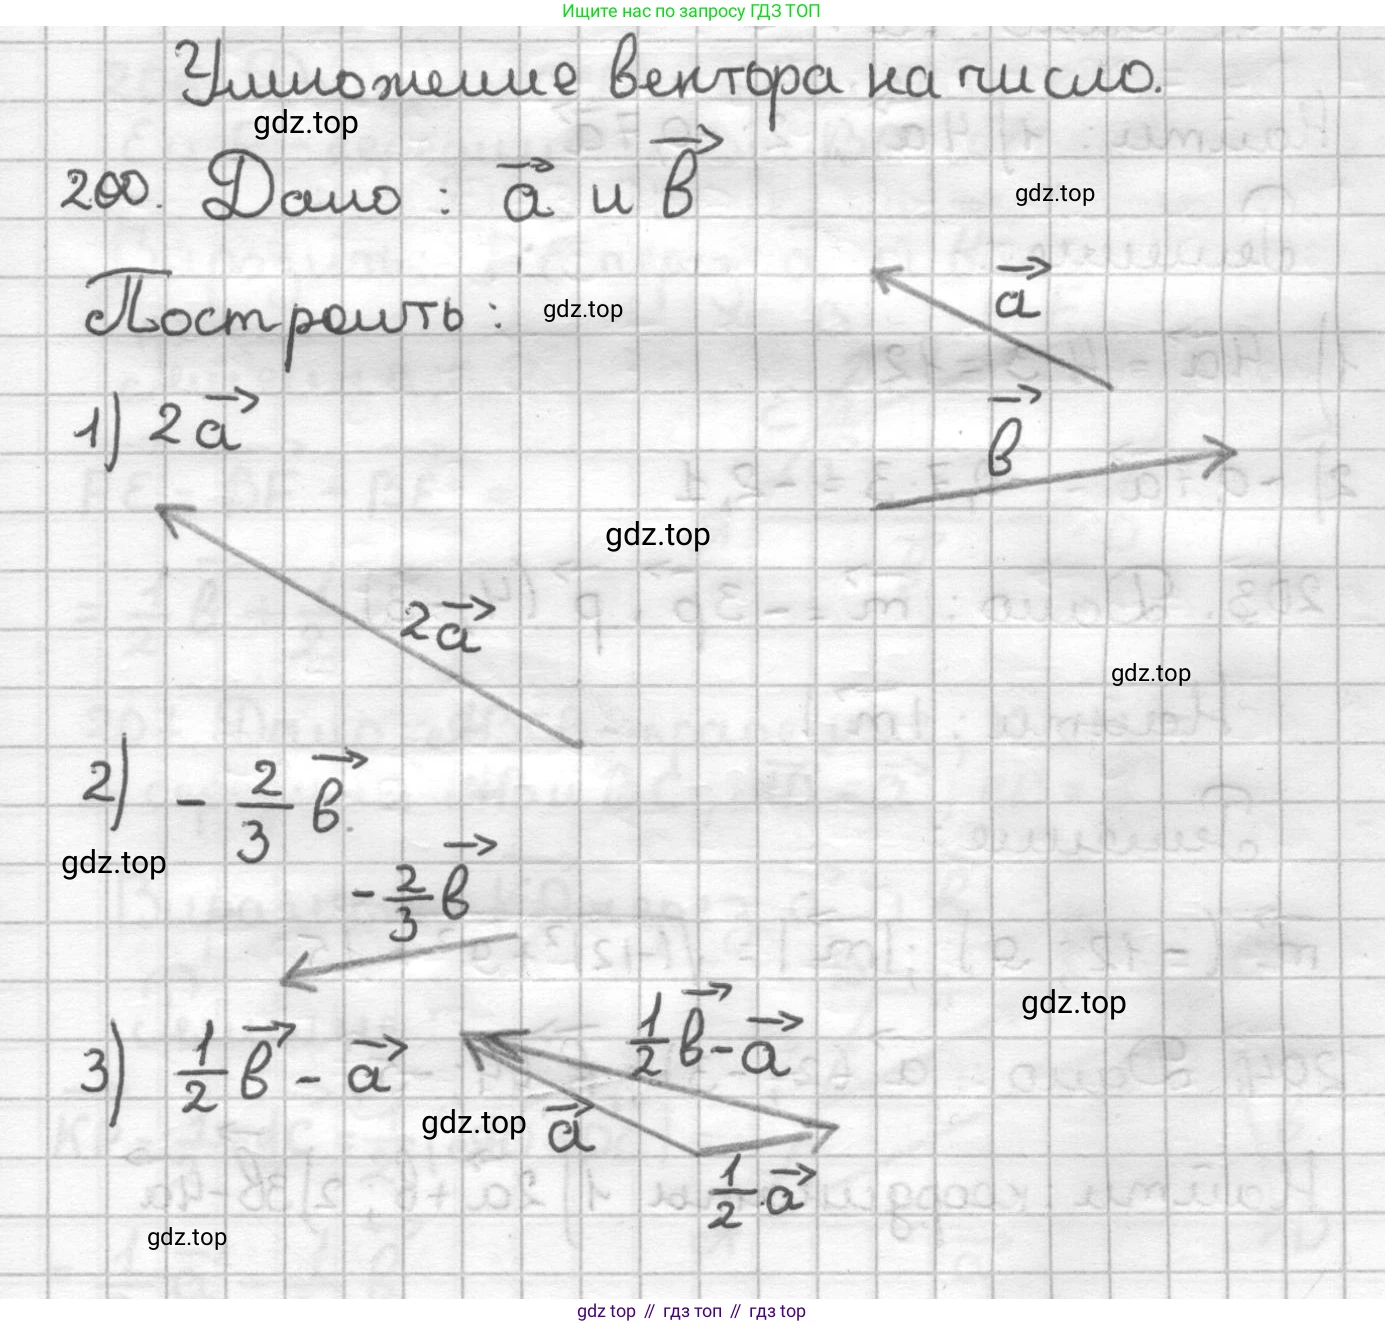 Ищите нас по запросу ГДЗ ТОП
Умножение вектора на число.
gdz.top
200. Дано: a⃗ и b⃗
gdz.top
a⃗
Построить:
gdz.top
1) 2a⃗
b⃗
gdz.top
2a⃗
gdz.top
2) - 2/3 b⃗.
gdz.top
- 2/3 b⃗
gdz.top
3) 1/2 b⃗ - a⃗
1/2 b⃗ - a⃗
gdz.top
a⃗
1/2 · a⃗
gdz.top
gdz top // гдз топ // гдз top